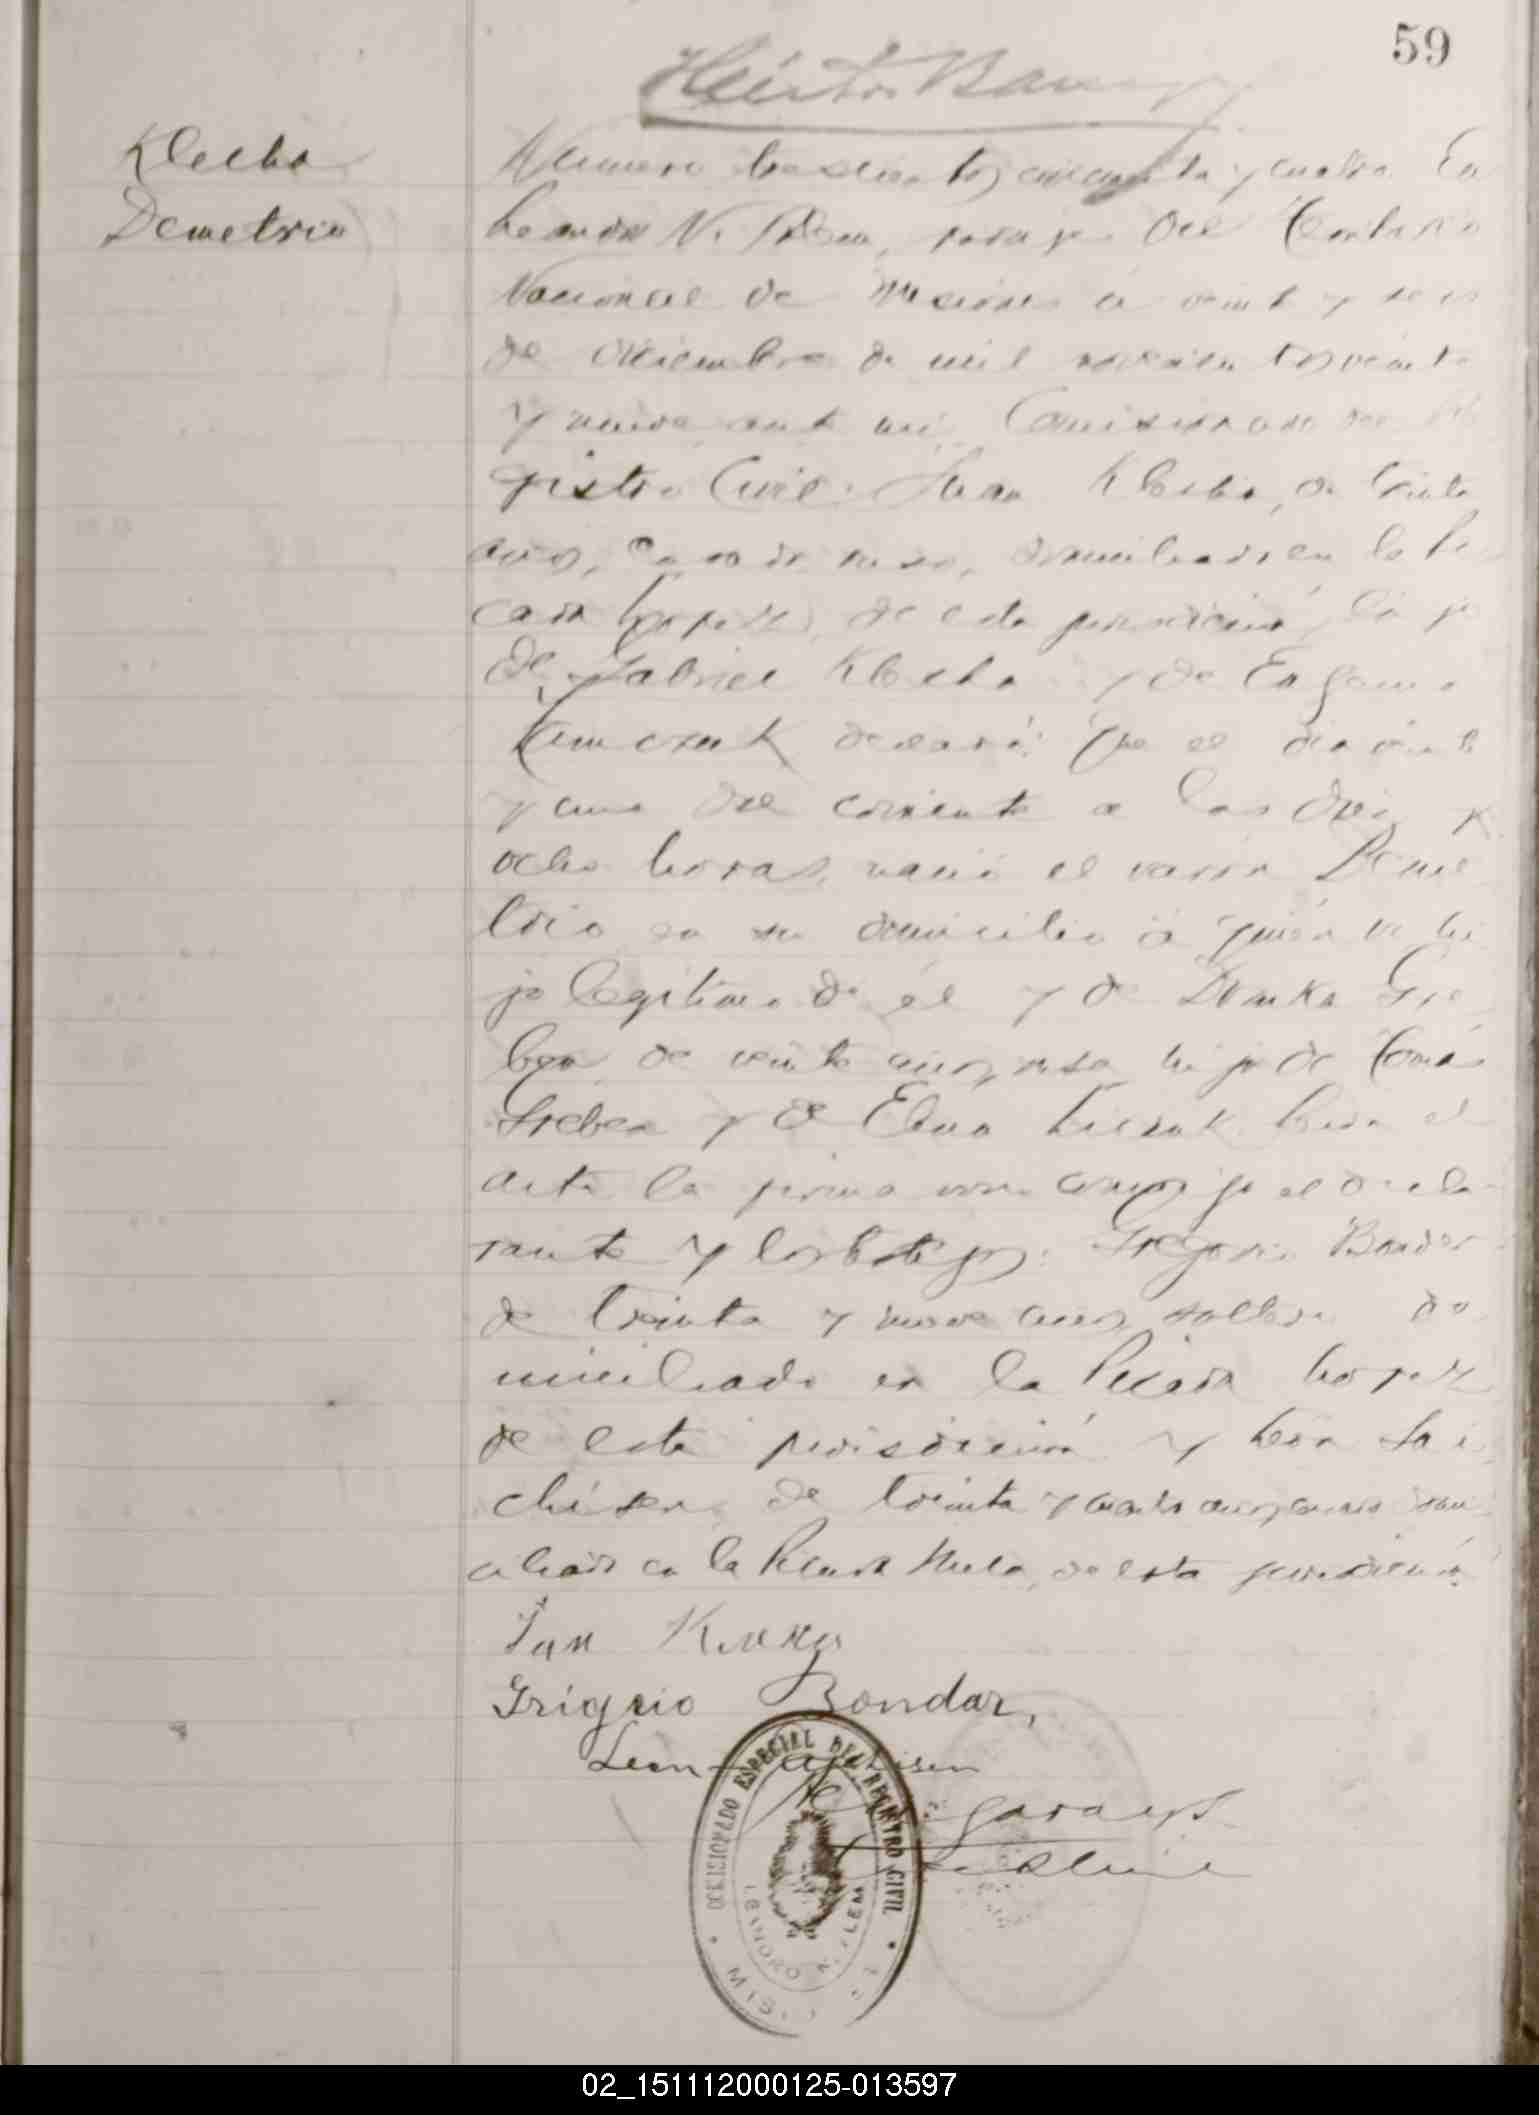 59
Héctor
Klecha
Demetrio
Número trescientos cincuenta y cuatro. En
Leandro N. Alem, paraje del Territorio
Nacional de Misiones á veinte y seis
de Diciembre de mil novecientos veinte
y nueve, ante mi Comisionado del Re
gistro Civil: Juan Klecha, de treinta
años, casado, ruso, domiciliado en la Pi
cada Lopez, de esta jurisdicción, hijo
de Gabriel Klecha y de
declaró: Que el dia veinte
y uno del corriente a las diez y
ocho horas, nació el varón Deme
trio en su domicilio á quién vi hi
jo legítimo de él y de Gre
ben de veinte años, rusa, hija de Tomás
Greben y de Elena Leida el
acta la firma con conmigo el decla
rante y los testigos: Gregorio Bonder
de treinta y nueve años, soltero do
miciliado en la Picada Lopez
de esta jurisdicción y León
de treinta y cuatro años, casado domi
ciliado en la Picada de esta jurisdicción
Grigorio Bondar,
Leon
COMISIONADO ESPECIAL DEL REGISTRO CIVIL
LEANDRO N. ALEM
MISIONES
02_151112000125-013597